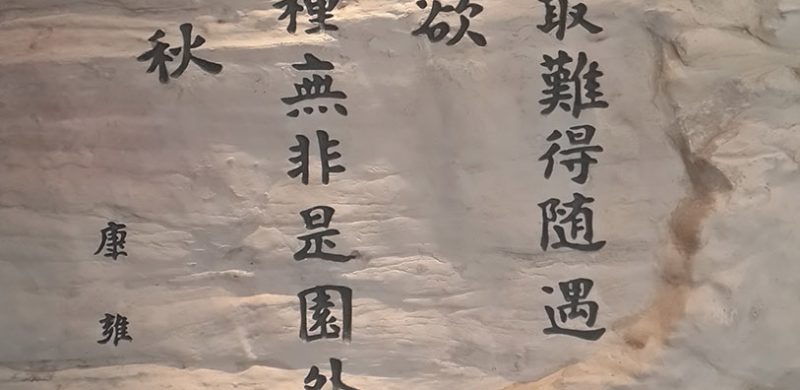 最難得随遇
欲
種無非是園外
秋
康雍